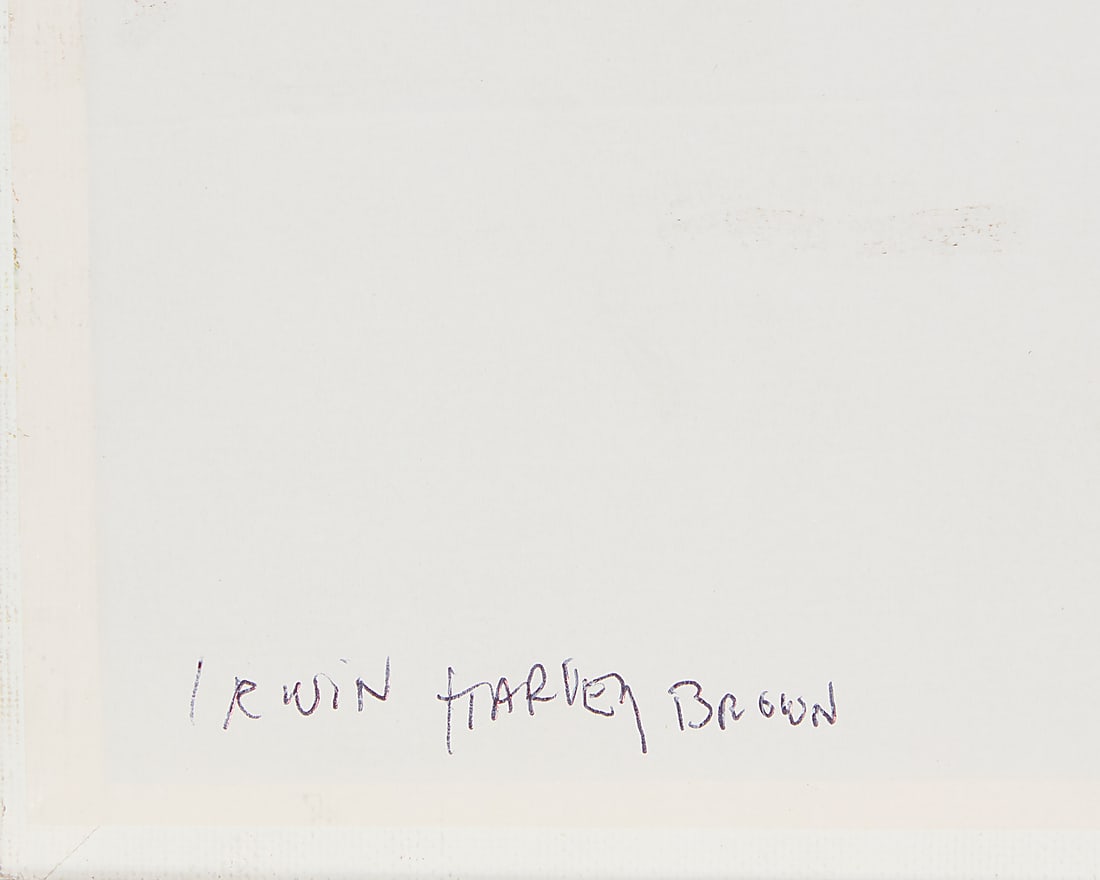 IRWiN HARVEy BROWN